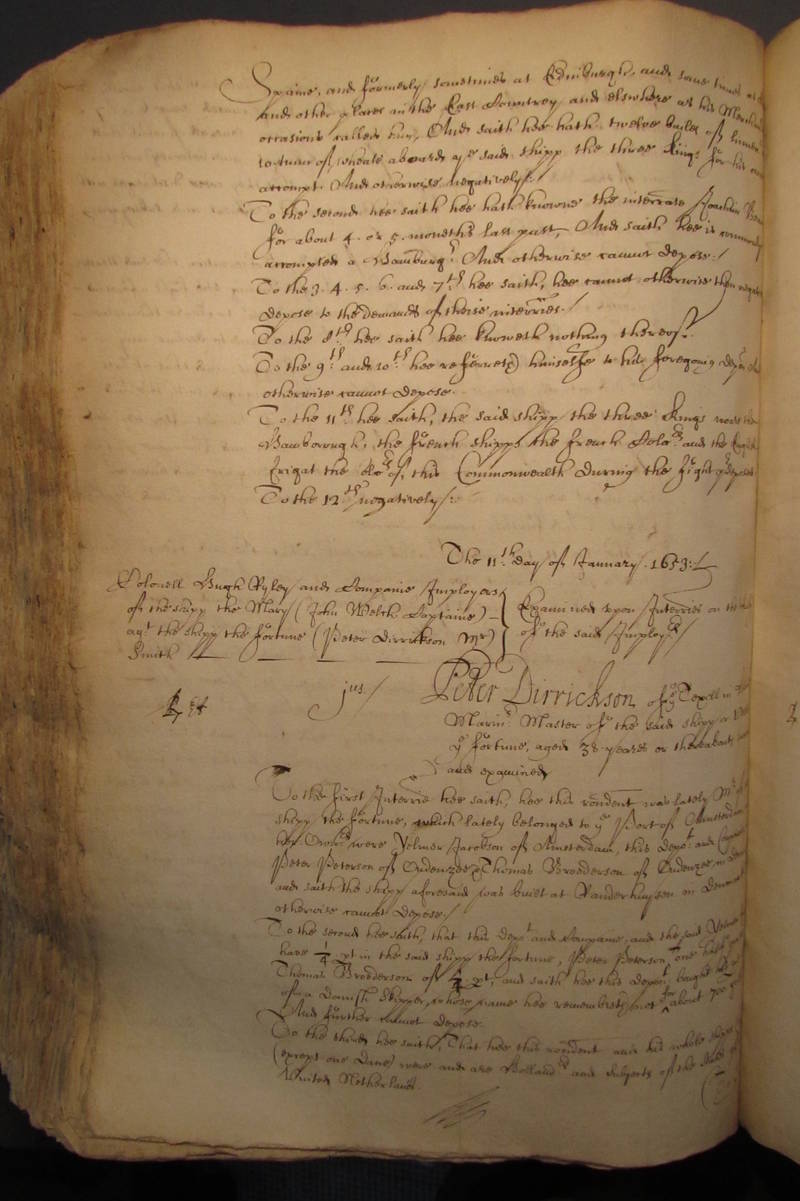 Spaine, and formerly sometimes at Edinburgh, and some times at
and other places in the East Countrey and elswhere as his Merchants
occasions called him, And saith hee hath twelve bales of
to him of, whoale aboard ye said shipp the three Kings for his owne
accompt. And otherwise negatively./
To the second hee saith hee hath knowne the interrate Joachim
for about 4. or 5. moneths last past, And saith hee is commonly
accompted a Hamburgr. And otherwise cannot depose./
To the 3. 4. 5. 6. and 7th hee saith, hee cannot otherwise then negatively
depose to the demands of theise interries./
To the 8th hee saith hee knoweth nothing thereof.
To the 9th and 10th hee referreth himselfe to his foregoing
otherwise cannot depose.
To the 11th hee saith, the said shipp the three Kings wore the
Hamborough, the French shipps the French Colors and the English
Frigat the Colors of this Commonwealth during the fight
To the 12th negatively./.
The 11th day of January. 1653:/
Colonell Hugh Ryley and Companie Imployers
of the shipp the Mary (John Welch Captaine)
agt the shipp the Fortune (Peter Dirrickson Mr)
Smith
Examined upon Interries on the
of the said Imployers/
jus./
Peter Dirrickson of ye Texell in
Marinr Master of the said shipp
ye Fortune, aged 38 yeares or thereabouts
and examined
To the first Interrie hee saith, hee this rondent was lately Mr of
shipp the Fortune, which lately belonged to ye Port of Amsterdam
her Ownrs were Velmer Jacobson of Amsterdam, this Depot and Company
Peter Peterson of Oudenzee & Thomas Brodderson of Oudenzee in
and saith the shipp aforesaid was built at Vanderhuyson in Denmark
otherwise cannot depose./
To the second hee saith, that this Depot and Companie, and the said Velmer
have 1/4 pt in the said shipp the Fortune, Peter Peterson one halfe
Thomas Brodderson of 1/4 pt, and saith hee this Depont bought
of a Danish Skipper, whose name hee remembreth not for about 700
And further cannot depose.
To the third hee saith, That hee this rondent and his whole
(except one Dane) were and are Hollandrs and subjects of the States of
United Netherlands